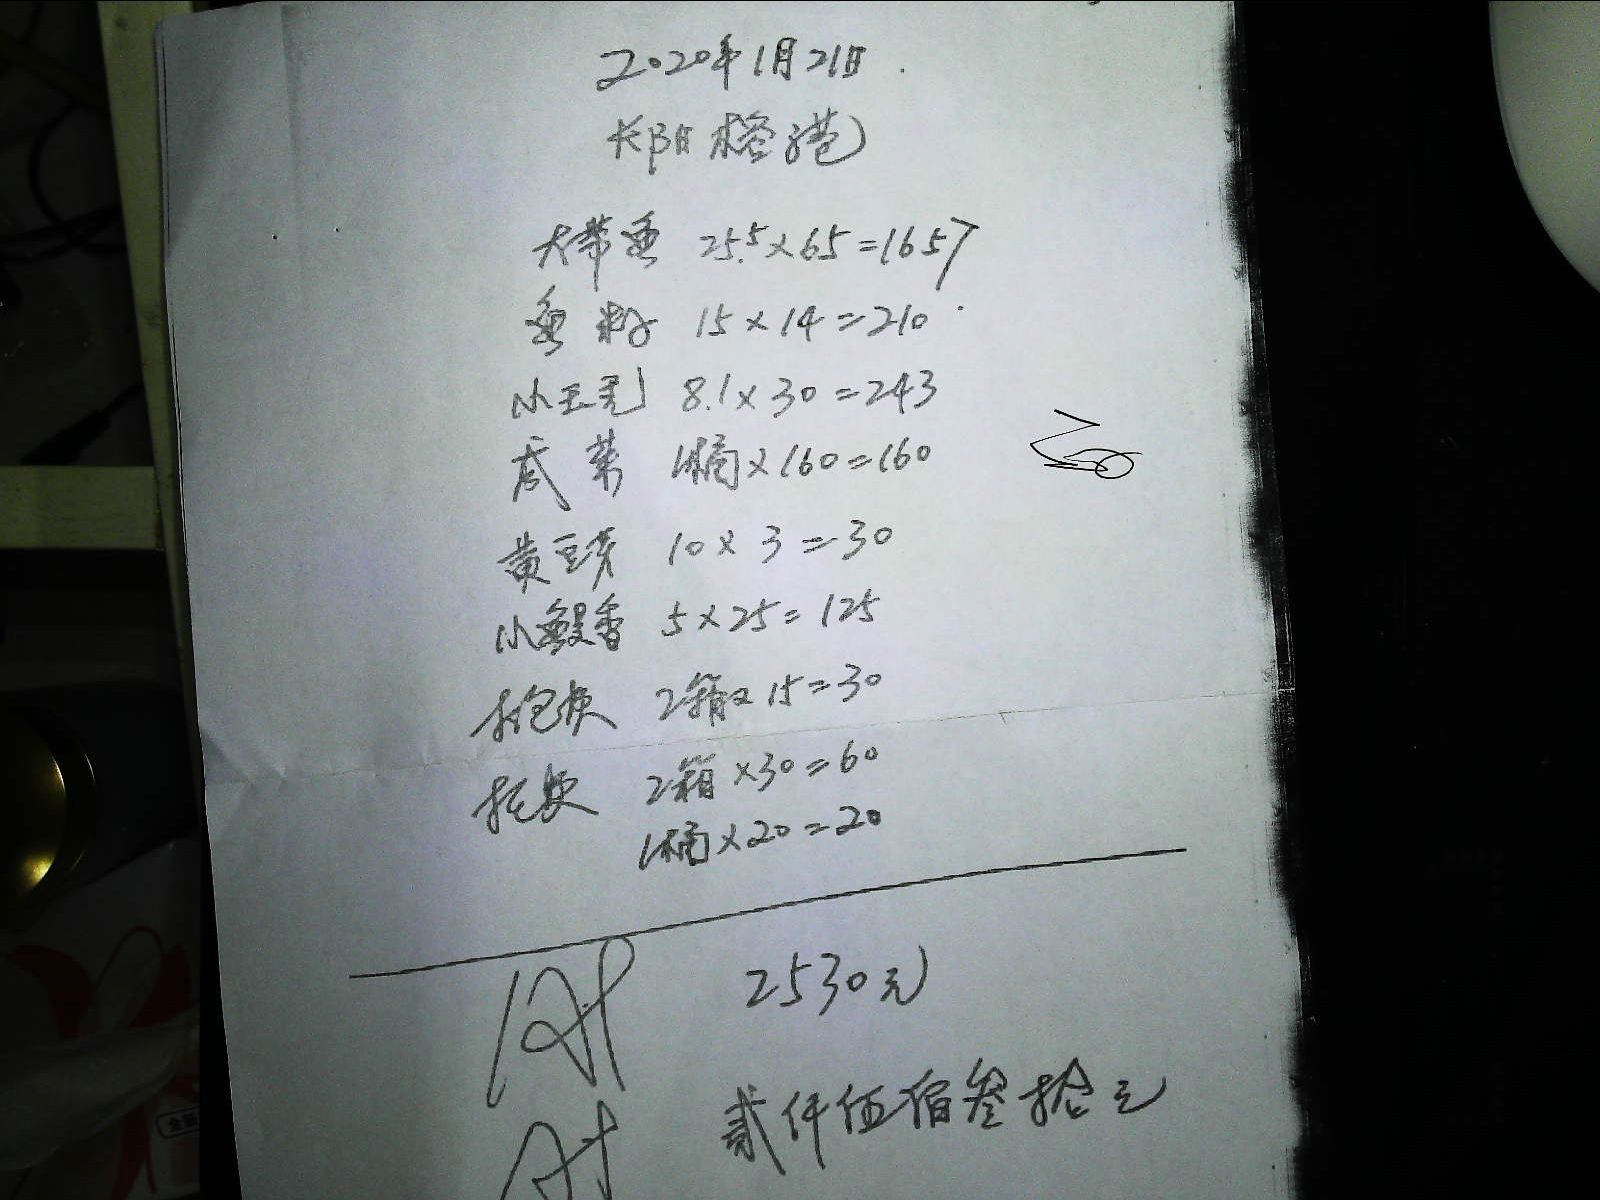 2020年1月21日
长阳榕港
大带鱼 25.5×65=1657
鱼籽 15×14=210
小王毛 8.1×30=243
咸菜 1桶×160=160
黄豆芽 10×3=30
小鳗香 5×25=125
2箱×15=30
2箱×30=60
1桶×20=20
2530元
贰仟伍佰叁拾元